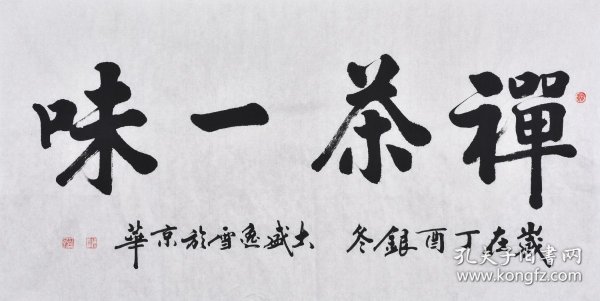 禪茶一味
歲在丁酉銀冬 盛逸雪於京華
孔夫子旧书网
www.kongfz.com